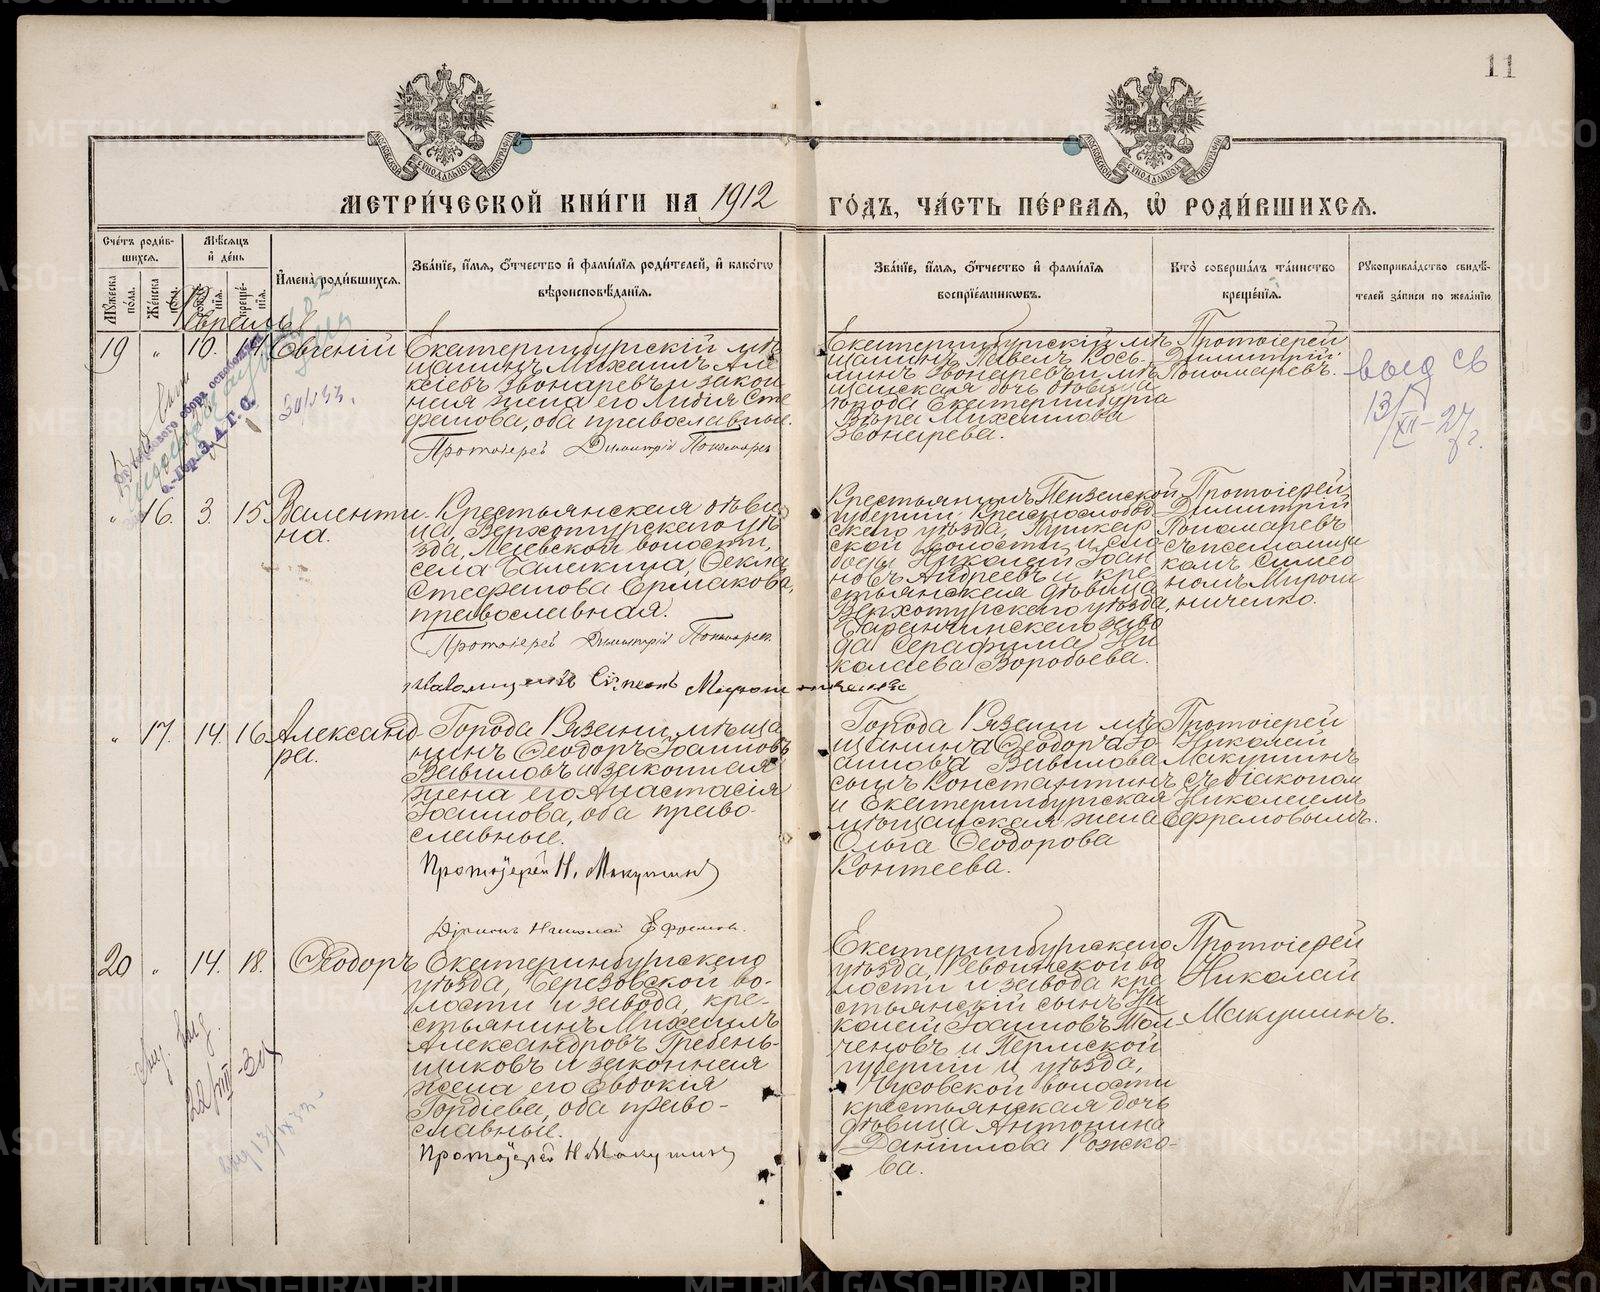 11
МЕТРИ́ЧЕСКОЙ КНИ́ГИ НА 1912 ГО́ДЪ, ЧА́СТЬ ПЕ́РВАЯ, Ѡ҆ РОДИ́ВШИХСЯ.
Сче́тъ роди́в-
шихся.
Му́жеска по́ла.
Же́нска по́ла.
Мѣ́сяцъ
и҆ де́нь
рожде́нія.
креще́нія.
И҆мена̀ роди́вшихся.
Зва́ніе, и҆́мя, ѻ҆́тчество и҆ фами́лія роди́телей, и҆ како́гѡ
вѣроисповѣ́данія.
Зва́ніе, и҆́мя, ѻ҆́тчество и҆ фами́лія
воспріе́мникѡвъ.
Кто̀ соверша́лъ та́инство
креще́нія.
Рꙋкоприкла́дство свидѣ́-
телей за́писи по жела́нію
Апрель
19 " 10. 14. Евгений
Екатеринбургскій мѣ-
щанинъ Михаилъ Але-
ксіевъ Звонаревъ и закон-
ная жена его Лидія Сте-
фанова, оба православные.
Протоіерей Димитрій Пономаревъ
Екатеринбургскій мѣ-
щанинъ Павелъ Кось-
минъ Звонаревъ и мѣ-
щанская дочь дѣвица
города Екатеринбурга
Вѣра Михаилова
Звонарева.
Протоіерей
Димитрій
Пономаревъ.
выд св
13/XII-27 г.
" 16. 3. 15. Валенти-
на.
Крестьянская дѣви-
ца, Верхотурскаго уѣ-
зда, Лаевской волости,
села Балакина, Ѳекла
Стефанова Ермакова,
православная.
Протоіерей Димитрій Пономаревъ
Псаломщикъ Сѵмеонъ Мирошниченко
Крестьянинъ Пензенской
губерніи Краснослобод-
скаго уѣзда,
ской волости и сло-
боды Николай Іоан-
новъ Андреевъ и кре-
стьянская дѣвица
Верхотурскаго уѣзда,
Баранчинскаго заво-
да Серафима Ни-
колаева Воробьева.
Протоіерей
Димитрій
Пономаревъ
съ псаломщи-
комъ Симео-
номъ Мирош-
ниченко.
" 17. 14. 16. Александ-
ра.
Города Рязани мѣща-
нинъ Ѳеодоръ Іоанновъ
Вавиловъ и законная
жена его Анастасія
Іоаннова, оба право-
славные.
Протоіерей Н. Макушинъ
Діаконъ Николай Ефремовъ.
Города Рязани мѣ-
щанина Ѳеодора Іо-
аннова Вавилова
сынъ Константинъ
и Екатеринбургская
мѣщанская жена
Ольга Ѳеодорова
Контеева.
Протоіерей
Николай
Макушинъ
съ діакономъ
Николаемъ
Ефремовымъ.
20 " 14. 18. Ѳеодоръ
Екатеринбургскаго
уѣзда, Березовской во-
лости и завода, кре-
стьянинъ Михаилъ
Александровъ Гребень-
щиковъ и законная
жена его Евдокія
Гордіева, оба право-
славные.
Протоіерей Н Макушинъ
Екатеринбургскаго
уѣзда, Ревдинской во-
лости и завода кре-
стьянскій сынъ Ни-
колай Іоанновъ Тол-
ченовъ и Пермской
губерніи и уѣзда,
Чусовской волости
крестьянская дочь
дѣвица Антонина
Даніилова Рожко-
ва.
Протоіерей
Николай
Макушинъ.